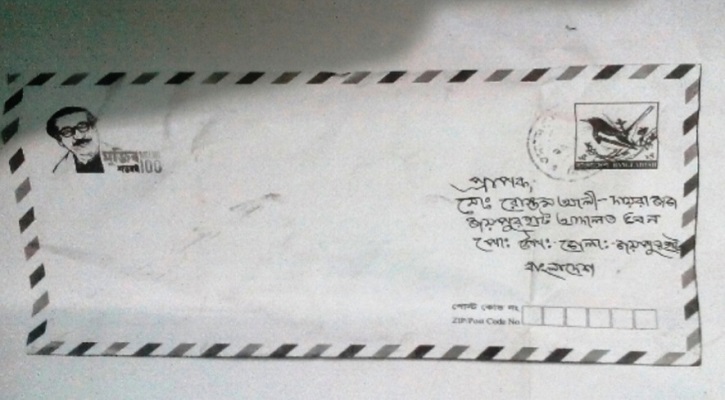 মুজিব
শতবর্ষ 100
BANGLADESH
প্রাপক,
মোঃ রোস্তম আলী- দায়রা জজ
জয়পুরহাট আদালত ভবন
পোঃ জেলাঃ- জয়পুরহাট
বাংলাদেশ
পোস্ট কোড নং
ZIP/Post Code No